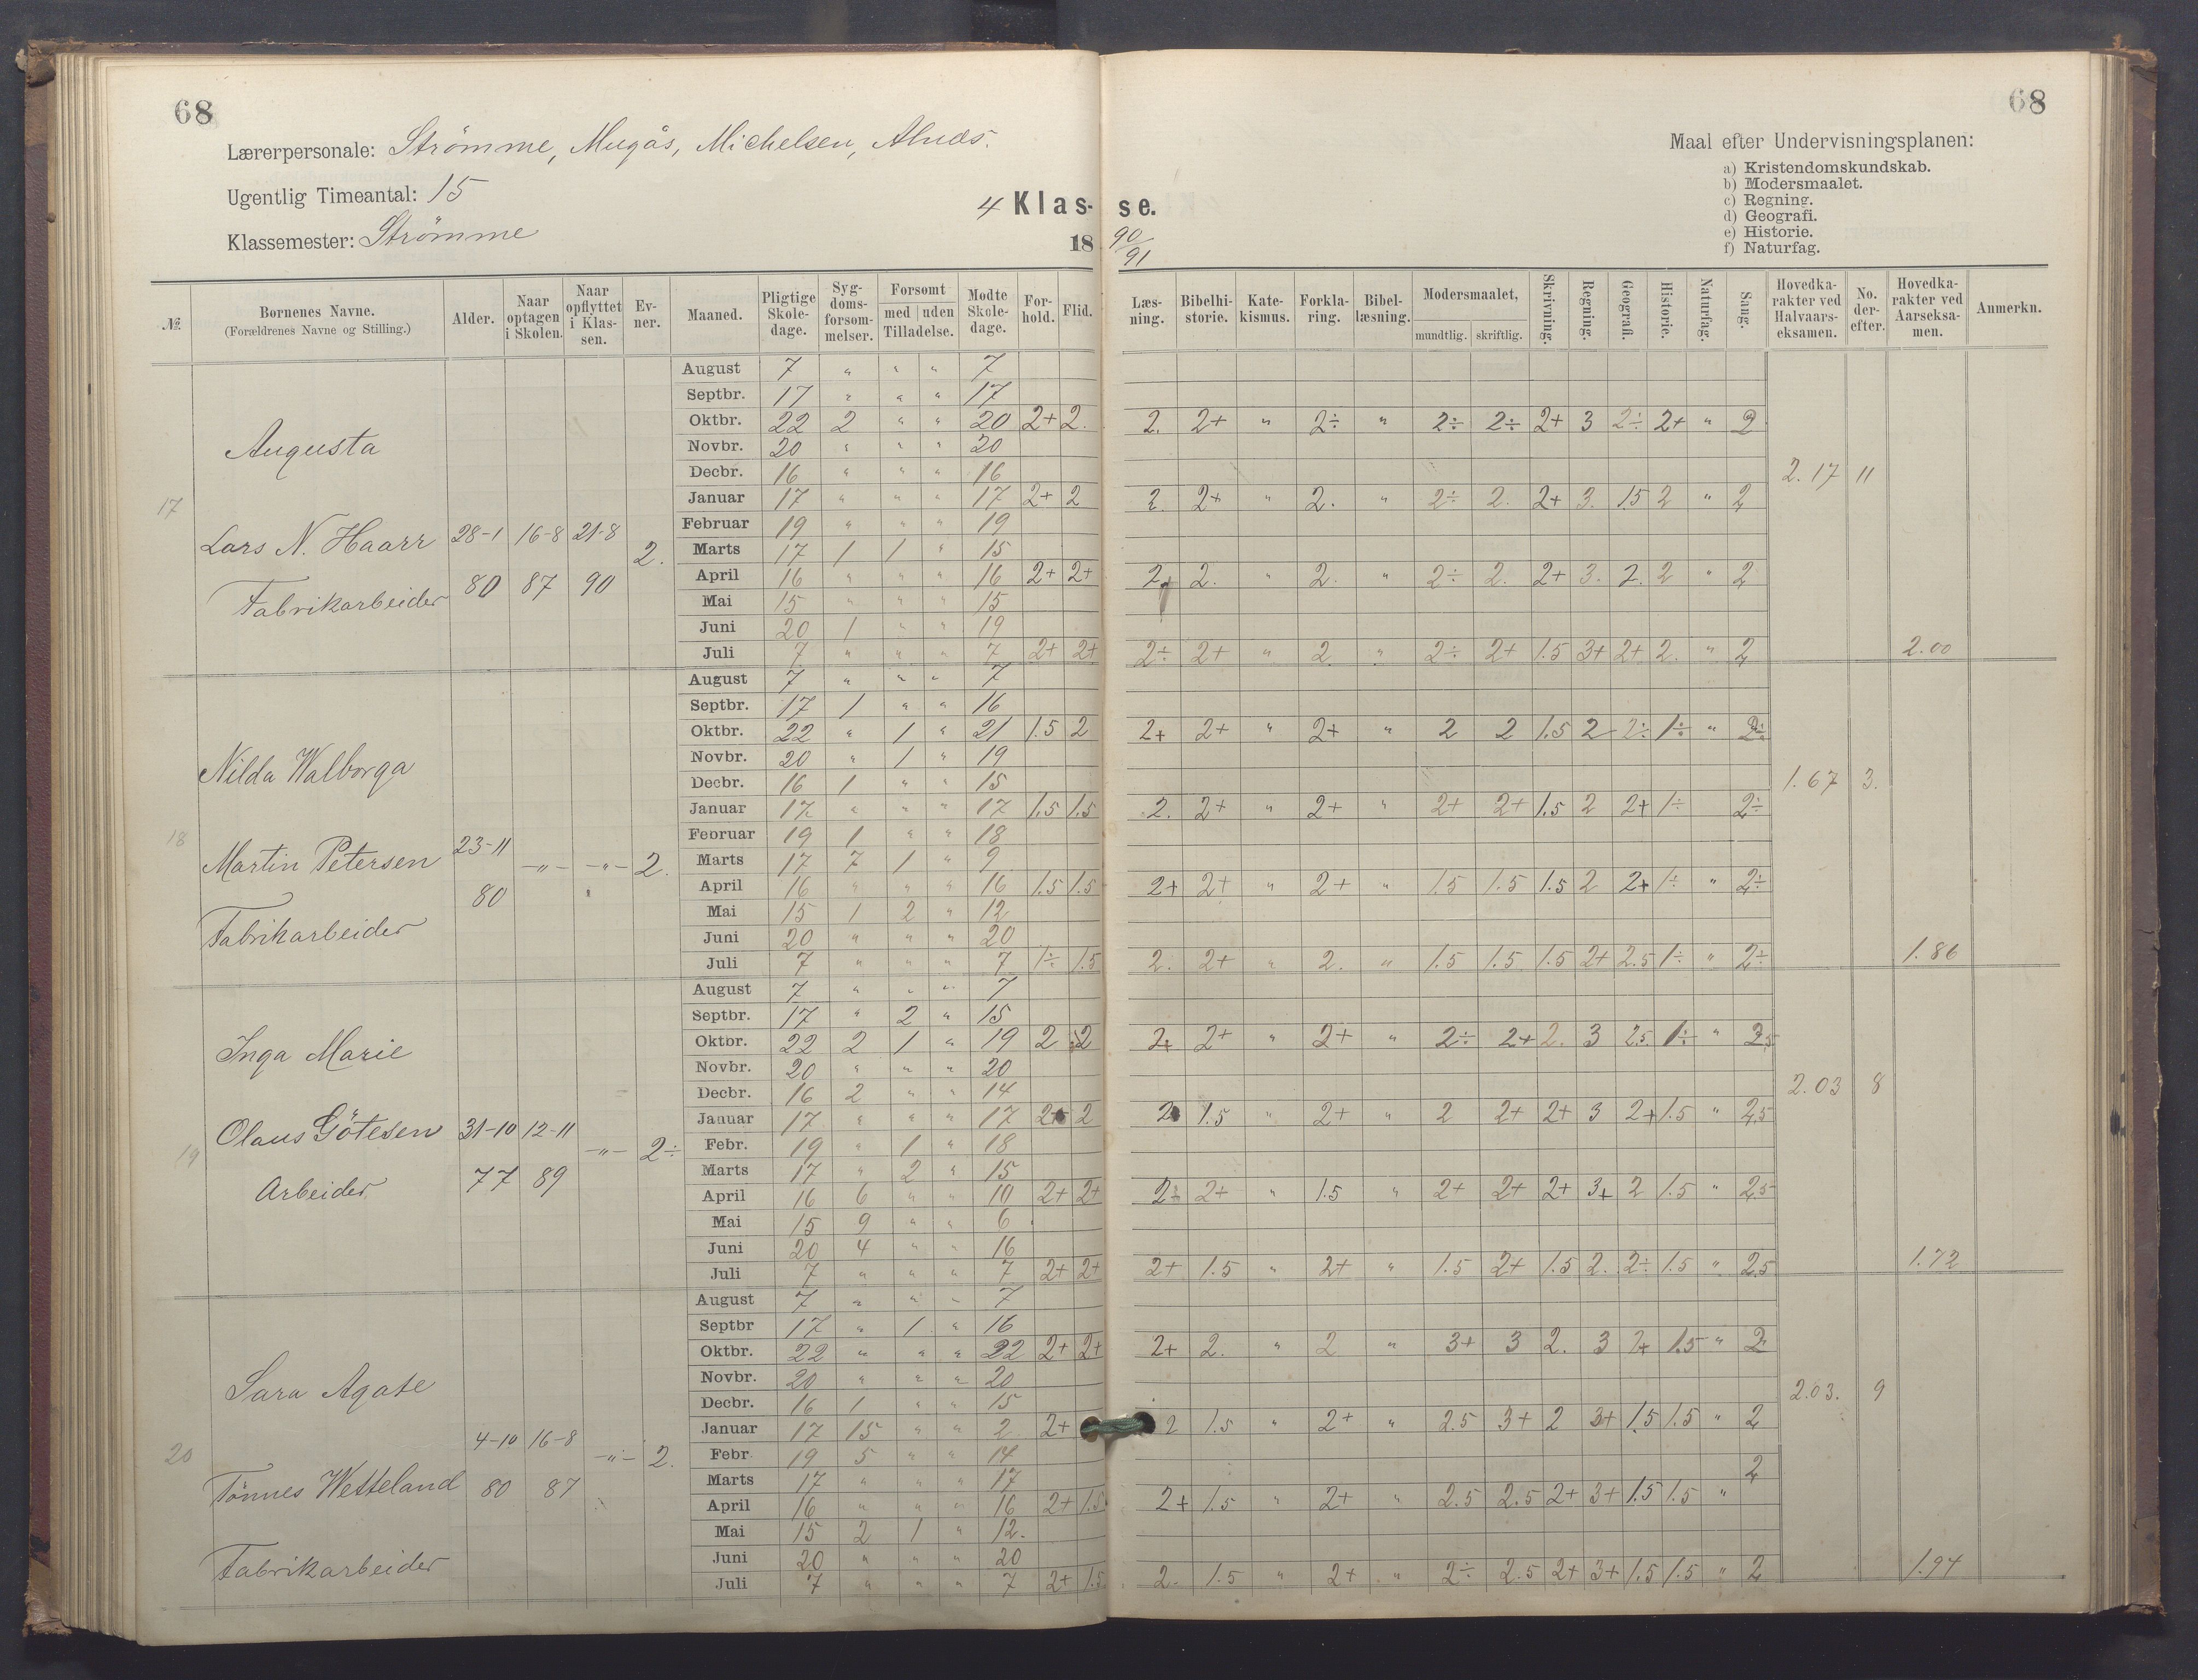 68
68
Lærerpersonale: Strömme, Mugås, Michelsen,
Ugentlig Timeantal: 15
Klassemester: Strömme
4 Klasse.
18 90/91
Maal efter Undervisningsplanen:
a) Kristendomskundskab.
b) Modersmaalet.
c) Regning.
d) Geografi.
e) Historie.
f) Naturfag.
№ Børnenes Navne. (Forældrenes Navne og Stilling.) Alder. Naar optagen i Skolen. Naar opflyttet i Klassen. Evner. Maaned. Pligtige Skoledage. Sygdomsforsømmelser. Forsømt med uden Tilladelse. Mødte Skoledage. Forhold. Flid. Læsning. Bibelhistorie. Katekismus. Forklaring. Bibellæsning. Modersmaalet, mundtlig. skriftlig. Skrivning. Regning. Geografi. Historie. Naturfag. Sang. Hovedkarakter ved Halvaarseksamen. No. derefter. Hovedkarakter ved Aarseksamen. Anmerkn.
17 Augusta
Lars N. Haarr 28-1 16-8 21-8 2.
Fabrikarbeider 80 87 90
August 7 " " " 7
Septbr. 17 " " " 17
Oktbr. 22 2 " " 20 2+ 2. 2. 2+ " 2÷ " 2÷ 2÷ 2+ 3 2÷ 2+ " 2
Novbr. 20 " " " 20
Decbr. 16 " " " 16 2.17 11
Januar 17 " " " 17 2+ 2 2. 2+ " 2. " 2÷ 2. 2+ 3. 1.5 2 " 2
Februar 19 " " " 19
Marts 17 1 1 " 15
April 16 " " " 16 2+ 2+ 2+ 2. " 2. " 2÷ 2. 2+ 3. 2. 2 " 2
Mai 15 " " " 15
Juni 20 1 " " 19
Juli 7 " " " 7 2+ 2+ 2÷ 2+ " 2 " 2÷ 2+ 1.5 3+ 2+ 2. " 2 2.00
18 Nilda Walborga
Martin Petersen 23-11 -"- -"- 2.
80
Fabrikarbeider
August 7 " " " 7
Septbr. 17 1 " " 16
Oktbr. 22 " 1 " 21 1.5 2 2+ 2+ " 2+ " 2 2 1.5 2 2÷ 1÷ " 2÷
Novbr. 20 " 1 " 19
Decbr. 16 1 " " 15 1.67 3.
Januar 17 " " " 17 1.5 1.5 2. 2+ " 2+ " 2+ 2+ 1.5 2 2+ 1÷ 2÷
Februar 19 1 " " 18
Marts 17 7 1 " 9
April 16 " " " 16 1.5 1.5 2+ 2+ " 2+ " 1.5 1.5 1.5 2 2+ 1÷ " 2÷
Mai 15 1 2 " 12
Juni 20 " " " 20
Juli 7 " " " 7 1÷ 1.5 2. 2+ " 2. " 1.5 1.5 1.5 2+ 2.5 1÷ " 2÷ 1.86
19 Inga Marie
Olaus Götesen 31-10 12-11 -"- 2÷
Arbeider 77 89
August 7 " " " 7
Septbr. 17 " 2 " 15
Oktbr. 22 2 1 " 19 2 2 2+ 2+ " 2+ " 2÷ 2+ 2. 3 2.5 1÷ " 2.5
Novbr. 20 " " " 20
Decbr. 16 2 " " 14 2.03 8
Januar 17 " " " 17 2+ 2 2 1.5 " 2+ " 2 2+ 2+ 3 2+ 1.5 " 2.5
Febr. 19 " 1 " 18
Marts 17 " 2 " 15
April 16 6 " " 10 2+ 2+ 2÷ 2+ " 1.5 " 2+ 2+ 2+ 3+ 2 1.5 " 2.5
Mai 15 9 " " 6
Juni 20 4 " " 16
Juli 7 " " " 7 2+ 2+ 2+ 1.5 " 2+ " 1.5 2+ 1.5 2. 2÷ 1.5 " 2.5 1.72
20 Sara Agate
4-10 16-8 -"- 2.
Tönnes Wetteland 80 87
Fabrikarbeider
August 7 " " " 7
Septbr 17 " 1 " 16
Oktbr. 22 " " " 22 2+ 2+ 2+ 2. " 2 " 3+ 3 2. 3 2+ 1.5 " 2
Novbr. 20 " " " 20
Decbr. 16 1 " " 15 2.03. 9
Januar 17 15 " " 2 2+ 2 1.5 " 2+ " 2.5 3+ 2 3+ 1.5 1.5 " 2
Febr. 19 5 " " 14
Marts 17 " " " 17 2
April 16 " " " 16 2+ 1.5 2+ 1.5 " 2+ " 2.5 2.5 2+ 3+ 1.5 1.5 "
Mai 15 2 1 " 12.
Juni 20 " " " 20
Juli 7 " " " 7 2+ 1.5 2. 1.5 " 2+ " 2÷ 2.5 2+ 3+ 1.5 1.5 " 2 1.94